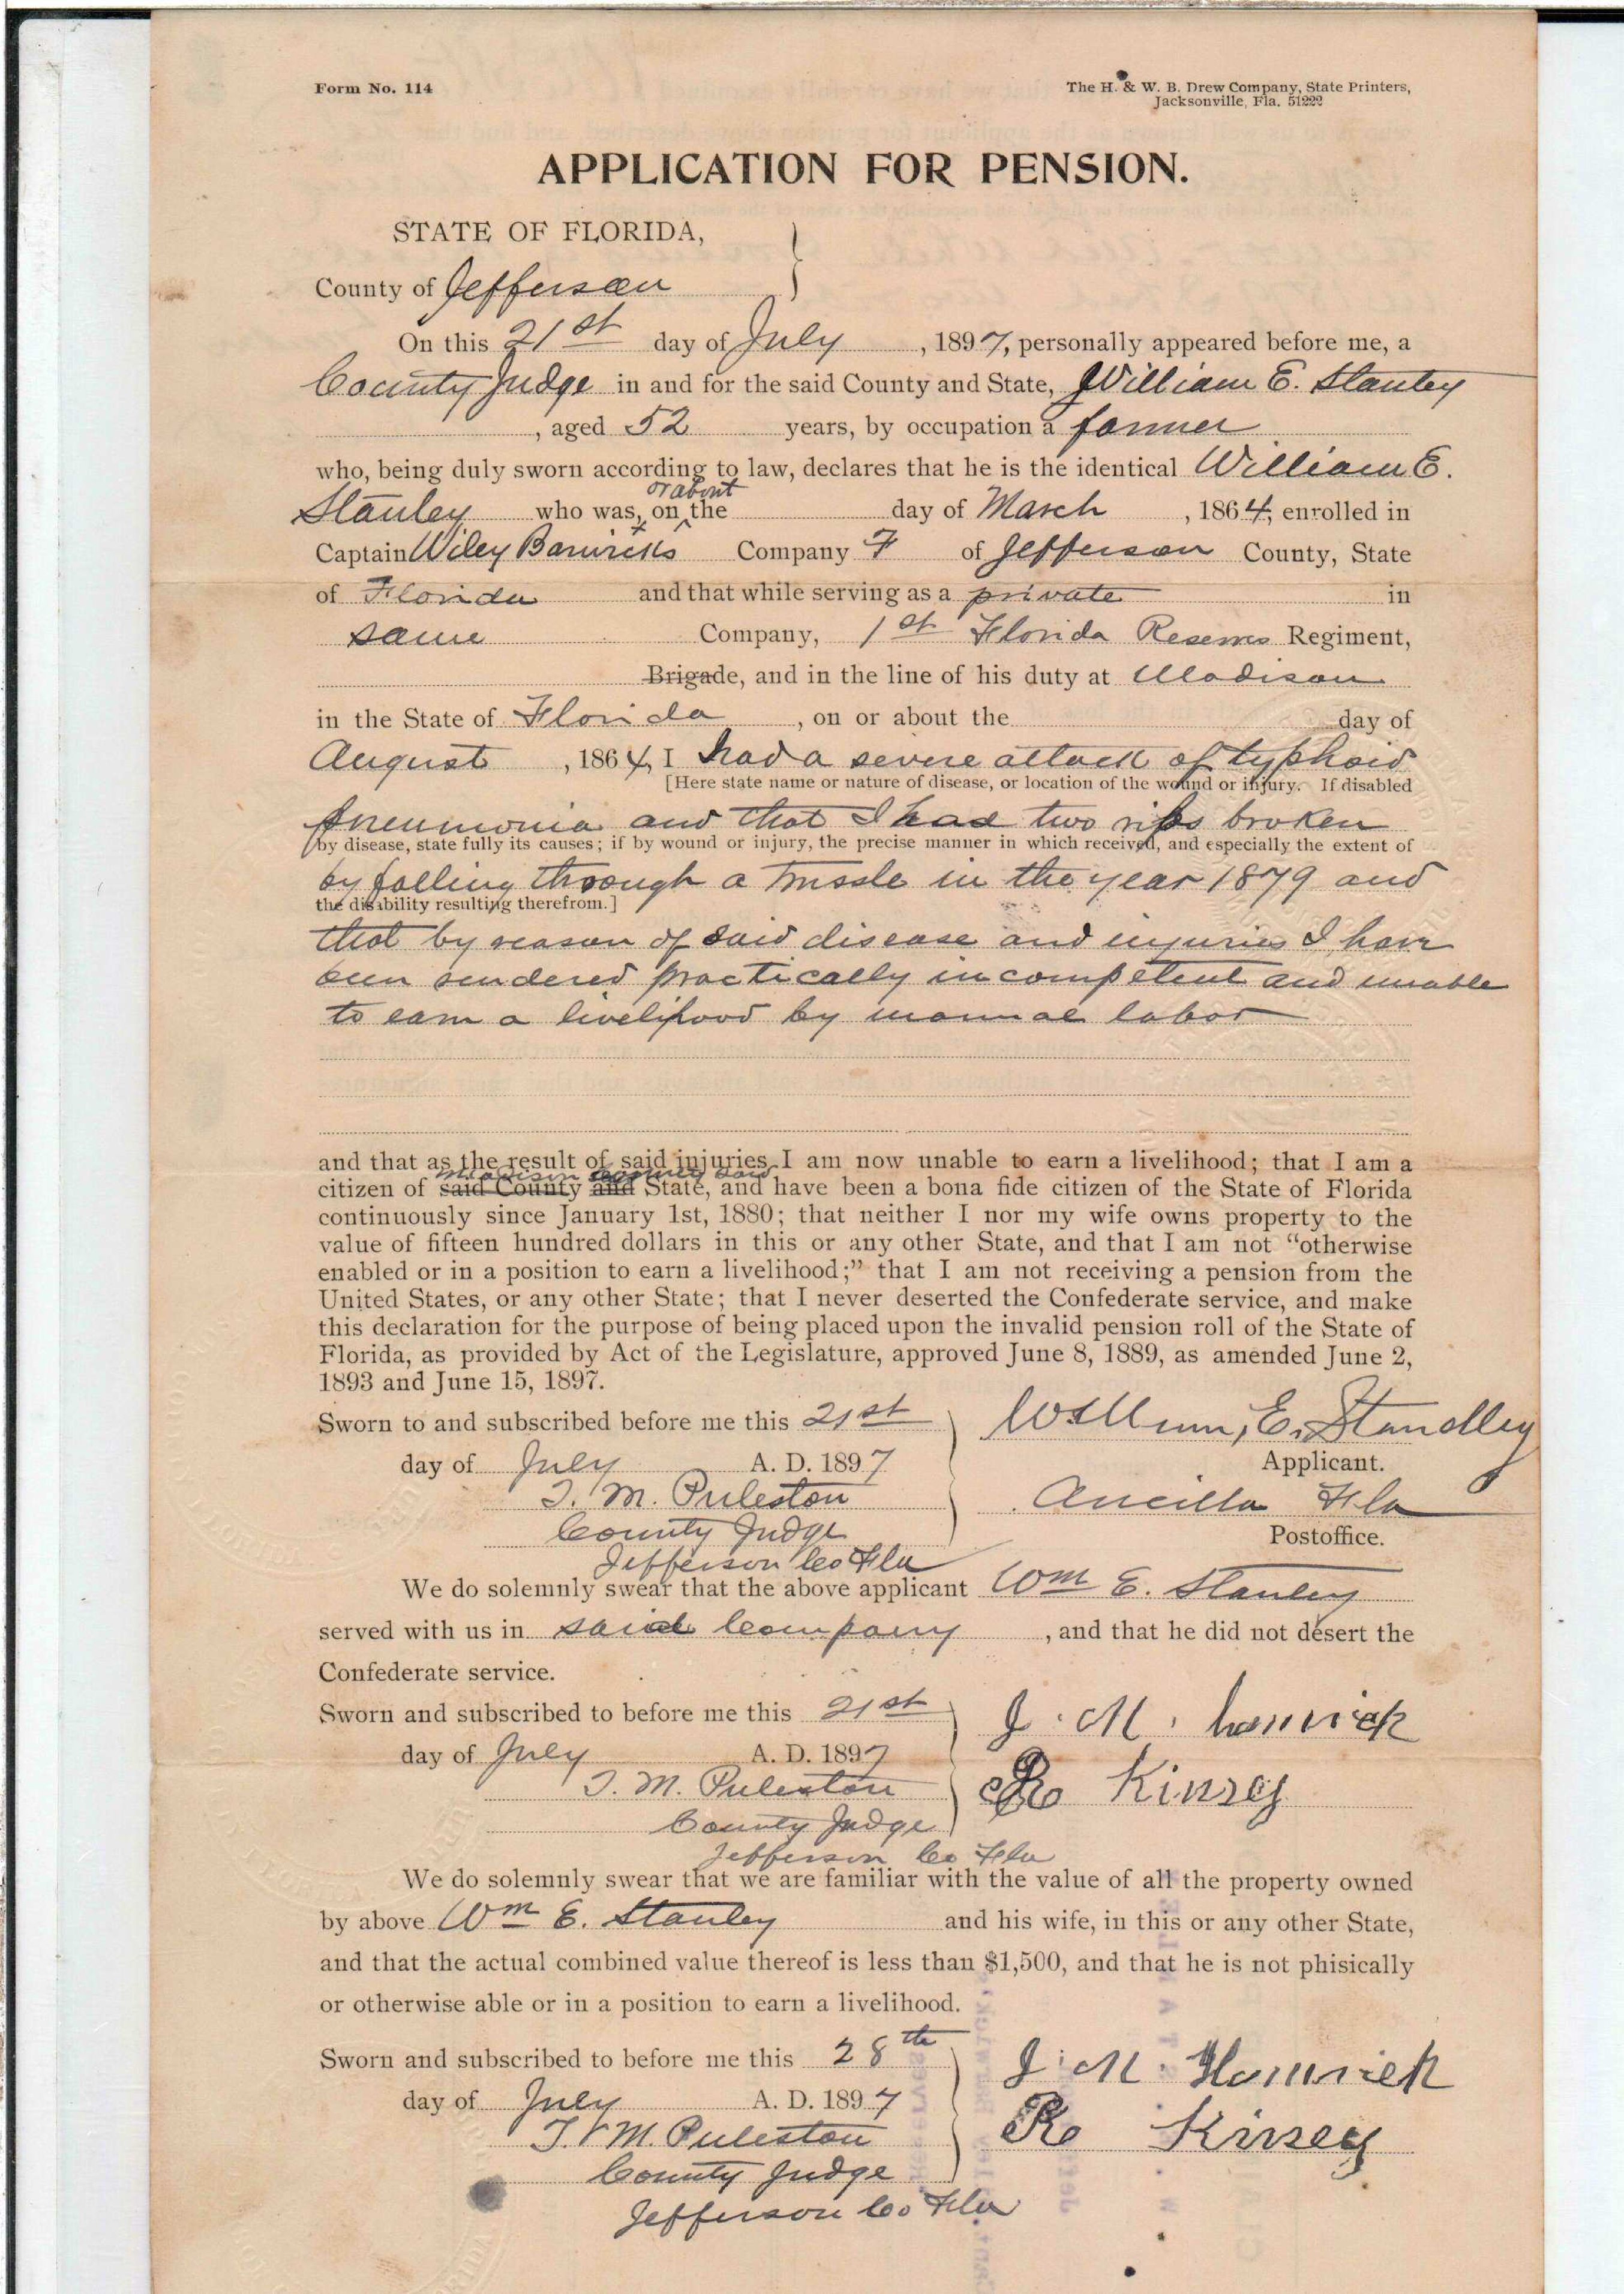 Form No. 114
The H. & W. B. Drew Company, State Printers,
Jacksonville, Fla. 51222
APPLICATION FOR PENSION.
STATE OF FLORIDA,
County of Jefferson
On this 21st day of July, 1897, personally appeared before me, a
County Judge in and for the said County and State, William E. Stanley
, aged 52 years, by occupation a farmer
who, being duly sworn according to law, declares that he is the identical William E.
or about
Stanley who was, on the day of March, 1864, enrolled in
Captain Wiley Barwicks Company F of Jefferson County, State
of Florida and that while serving as a private in
same Company, 1st Florida Reserves Regiment,
Brigade, and in the line of his duty at Madison
in the State of Florida, on or about the day of
August, 1864, I had a severe attack of typhoid
[Here state name or nature of disease, or location of the wound or injury. If disabled
pneumonia and that I had two ribs broken
by disease, state fully its causes; if by wound or injury, the precise manner in which received, and especially the extent of
by falling through a trussle in the year 1879 and
the disability resulting therefrom.]
that by reason of said disease and injuries I have
been rendered practically incompetent and unable
to earn a livelihood by manual labor
and that as the result of said injuries I am now unable to earn a livelihood; that I am a
Madison County said
citizen of said County and State, and have been a bona fide citizen of the State of Florida
continuously since January 1st, 1880; that neither I nor my wife owns property to the
value of fifteen hundred dollars in this or any other State, and that I am not "otherwise
enabled or in a position to earn a livelihood;" that I am not receiving a pension from the
United States, or any other State; that I never deserted the Confederate service, and make
this declaration for the purpose of being placed upon the invalid pension roll of the State of
Florida, as provided by Act of the Legislature, approved June 8, 1889, as amended June 2,
1893 and June 15, 1897.
Sworn to and subscribed before me this 21st
William, E. Standley
day of July A. D. 1897
Applicant.
T. M. Puleston
Aucilla Fla
County Judge
Postoffice.
Jefferson Co Fla
We do solemnly swear that the above applicant Wm E. Stanley
served with us in said Company, and that he did not desert the
Confederate service.
Sworn and subscribed to before me this 21st
J. M. Hamrick
day of July A. D. 1897
R Kinsey
T. M. Puleston
County Judge
Jefferson Co Fla
We do solemnly swear that we are familiar with the value of all the property owned
by above Wm E. Stanley and his wife, in this or any other State,
and that the actual combined value thereof is less than $1,500, and that he is not phisically
or otherwise able or in a position to earn a livelihood.
Sworn and subscribed to before me this 28th
J. M. Hamrick
day of July A. D. 1897
R Kinsey
T. M. Puleston
County Judge
Jefferson Co Fla